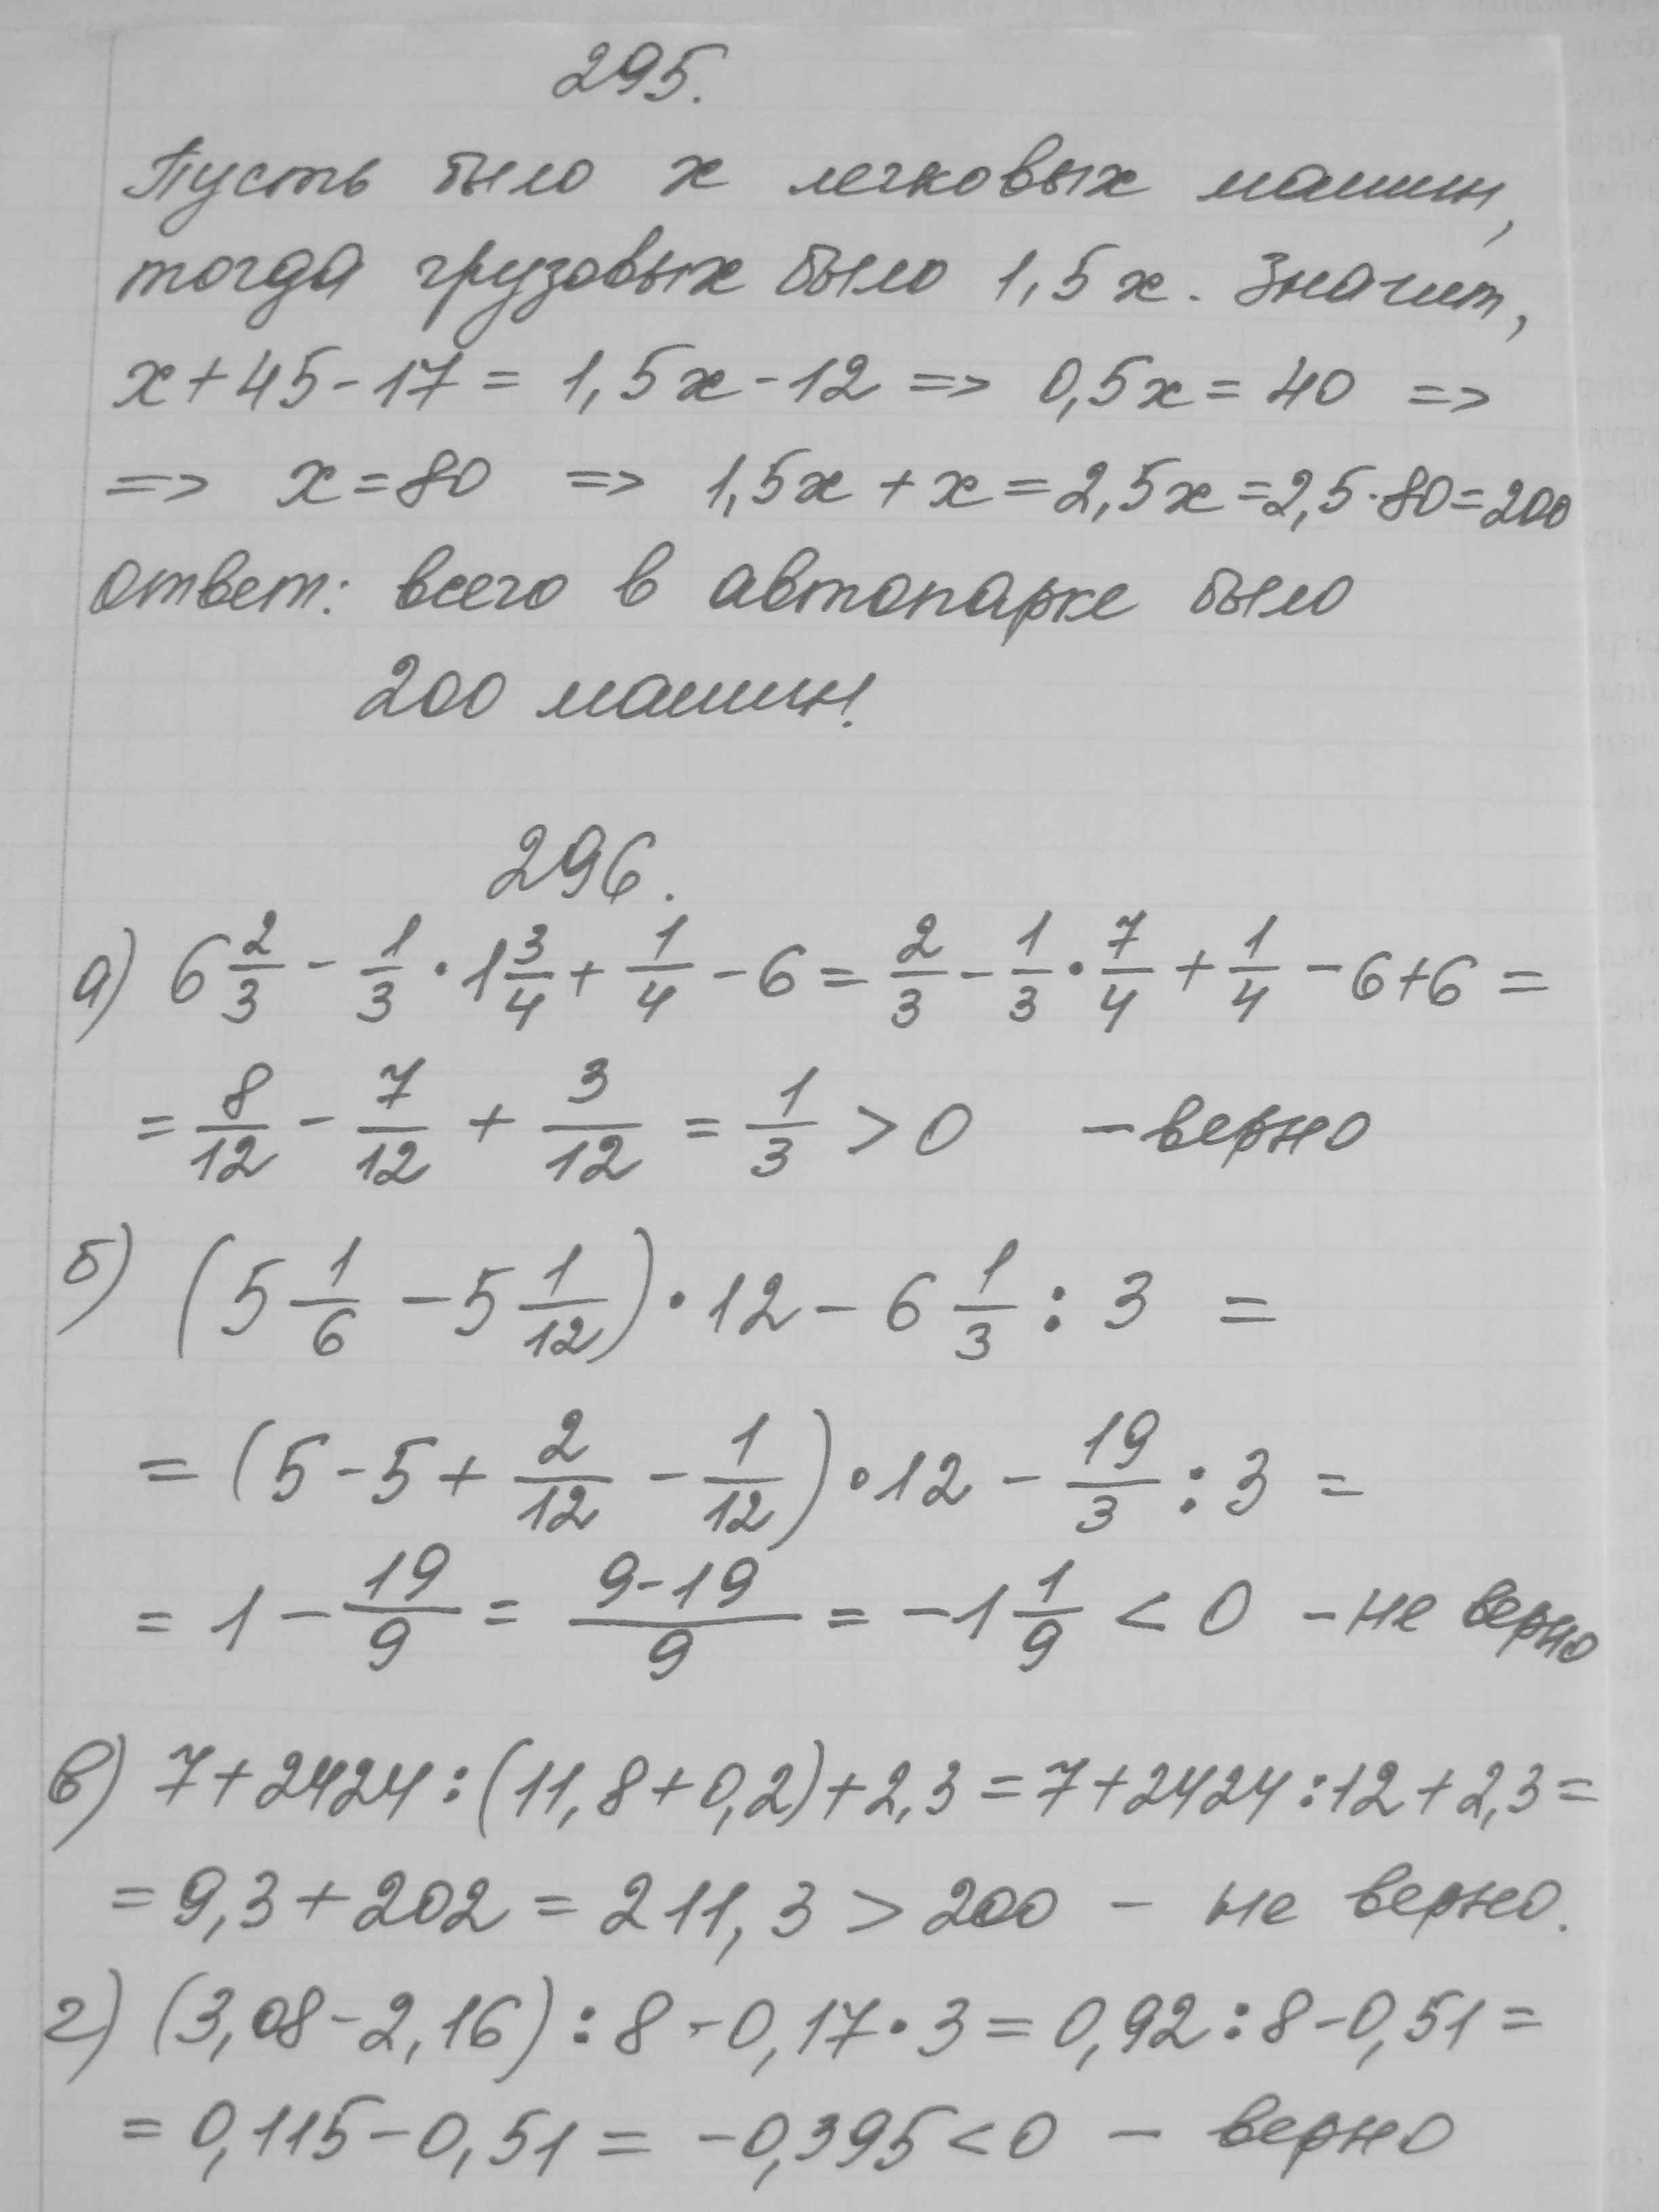 295.
Пусть было x легковых машин,
тогда грузовых было 1,5x. Значит,
x+45-17=1,5x-12 => 0,5x=40 =>
=> x=80 => 1,5x+x=2,5x=2,5·80=200
Ответ: всего в автопарке было
200 машин!
296.
а) 6 2/3 - 1/3 · 1 3/4 + 1/4 - 6 = 2/3 - 1/3 · 7/4 + 1/4 - 6+6 =
= 8/12 - 7/12 + 3/12 = 1/3 > 0 - верно
б) (5 1/6 - 5 1/12) · 12 - 6 1/3 : 3 =
= (5-5+ 2/12 - 1/12) · 12 - 19/3 : 3 =
= 1 - 19/9 = (9-19)/9 = -1 1/9 < 0 - не верно
в) 7+2424:(11,8+0,2)+2,3=7+2424:12+2,3=
=9,3+202=211,3>200 - не верно.
г) (3,08-2,16):8-0,17·3=0,92:8-0,51=
=0,115-0,51=-0,395<0 - верно